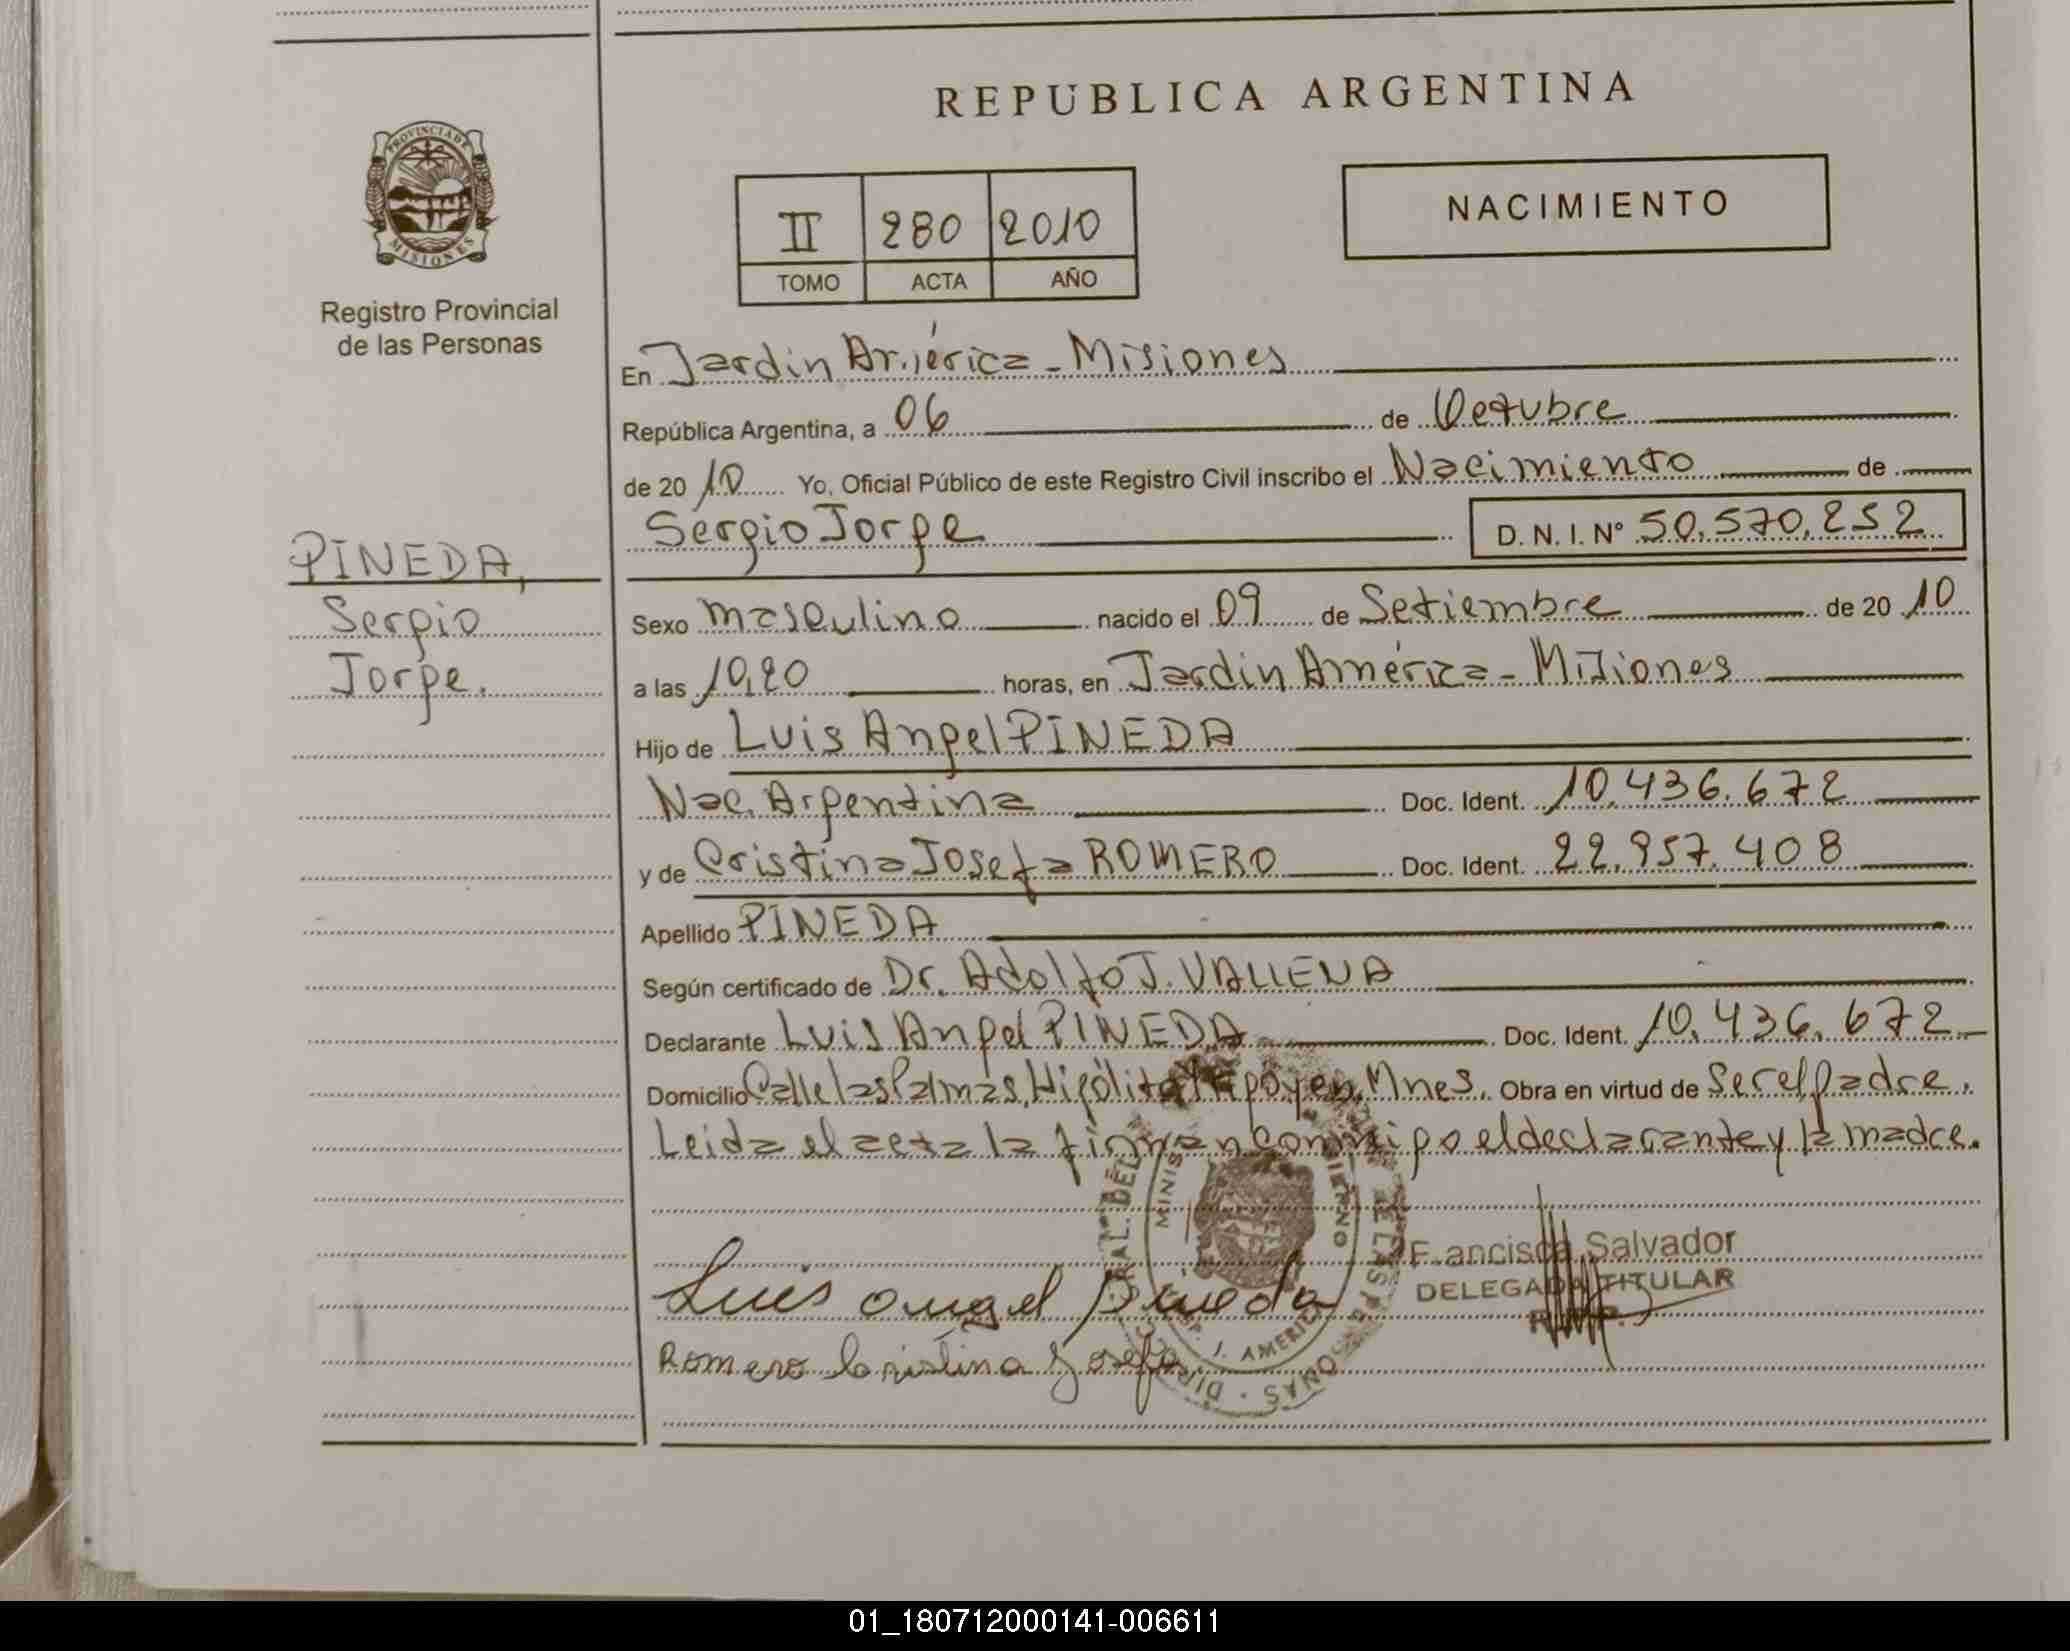 REPUBLICA ARGENTINA
PROVINCIA DE
MISIONES
Registro Provincial
de las Personas
II 280 2010
TOMO ACTA AÑO
NACIMIENTO
En Jardín América - Misiones
República Argentina, a 06 de Octubre
de 2010 Yo, Oficial Público de este Registro Civil inscribo el Nacimiento de
Sergio Jorge D. N. I. Nº 50.570.252
PINEDA,
Sergio
Jorge.
Sexo masculino nacido el 09 de Setiembre de 2010
a las 10,20 horas, en Jardín América - Misiones
Hijo de Luis Angel PINEDA
Nac. Argentina Doc. Ident. 10.436.672
y de Cristina Josefa ROMERO Doc. Ident. 22.957.408
Apellido PINEDA
Según certificado de Dr. Adolfo J. VALLENA
Declarante Luis Angel PINEDA Doc. Ident. 10.436.672
Domicilio Calle las Palmas, Hipólito Yrigoyen, Mnes. Obra en virtud de Ser el padre.
Leida el acta la firman conmigo el declarante y la madre.
Francisca Salvador
DELEGADA TITULAR
R.P.P.
Luis angel Pineda
Romero Cristina Josefa
J. AMERICA
01_180712000141-006611